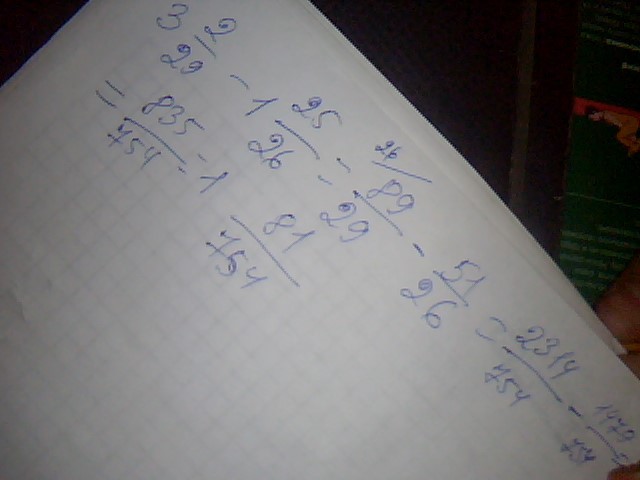 3 2/29 - 1 25/26 = 26/ 89/29 - 51/26 = 2314/754 - 1479/754 =
= 835/754 = 1 81/754